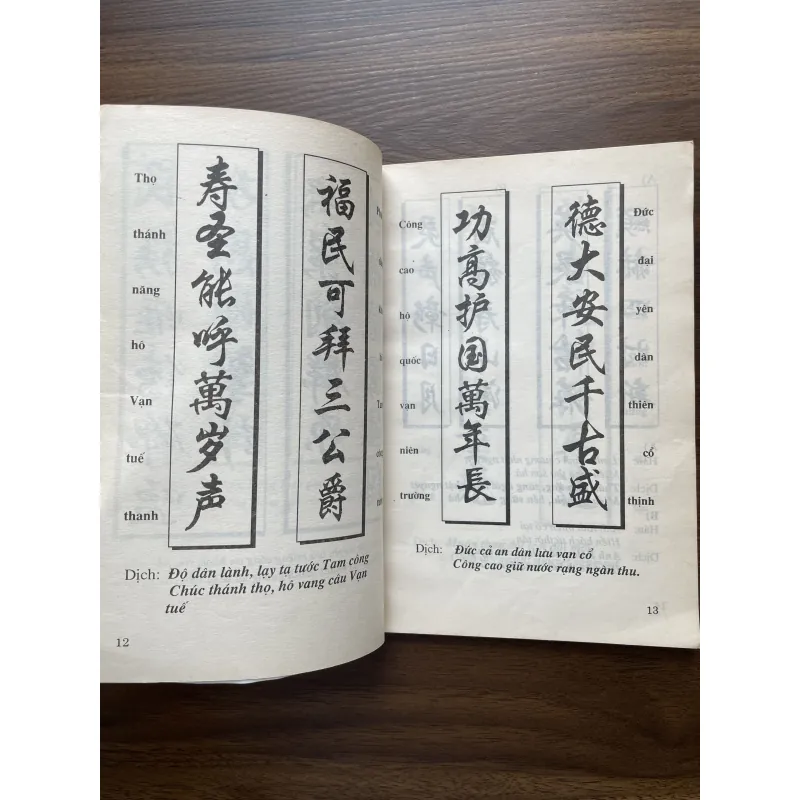 Thọ
thánh
năng
hô
Vạn
tuế
thanh
寿圣能呼萬岁声
福民可拜三公爵
Dịch: Độ dân lành, lạy tạ tước Tam công
Chúc thánh thọ, hô vang câu Vạn
tuế
12
Công
cao
hộ
quốc
vạn
niên
trường
功高护国萬年長
德大安民千古盛
Đức
đại
yên
dân
thiên
cổ
thịnh
Dịch: Đức cả an dân lưu vạn cổ
Công cao giữ nước rạng ngàn thu.
13